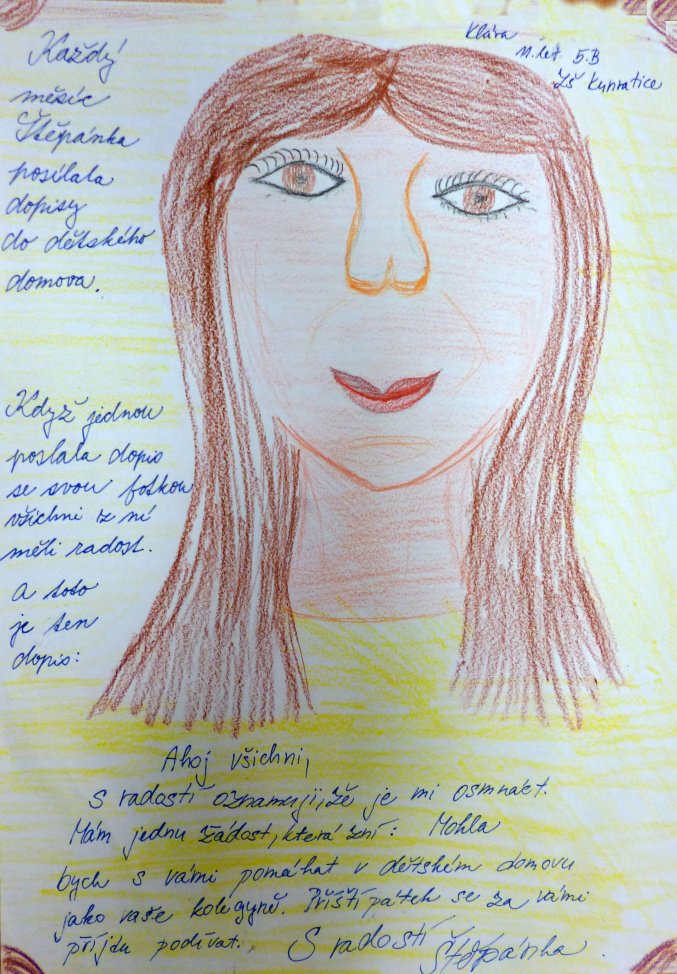 Klára
11. let 5.B
ZŠ Kunratice
Každý
měsíc
Štěpánka
posílala
dopisy
do dětského
domova.
Když jednou
poslala dopis
se svou fotkou
všichni z ní
měli radost.
A toto
je ten
dopis:
Ahoj všichni,
S radostí oznamuji, že je mi osmnáct.
Mám jednu žádost, která zní: Mohla
bych s vámi pomáhat v dětském domovu
jako vaše kolegyně. Příští pátek se za vámi
příjdu podívat. S radostí Štěpánka.